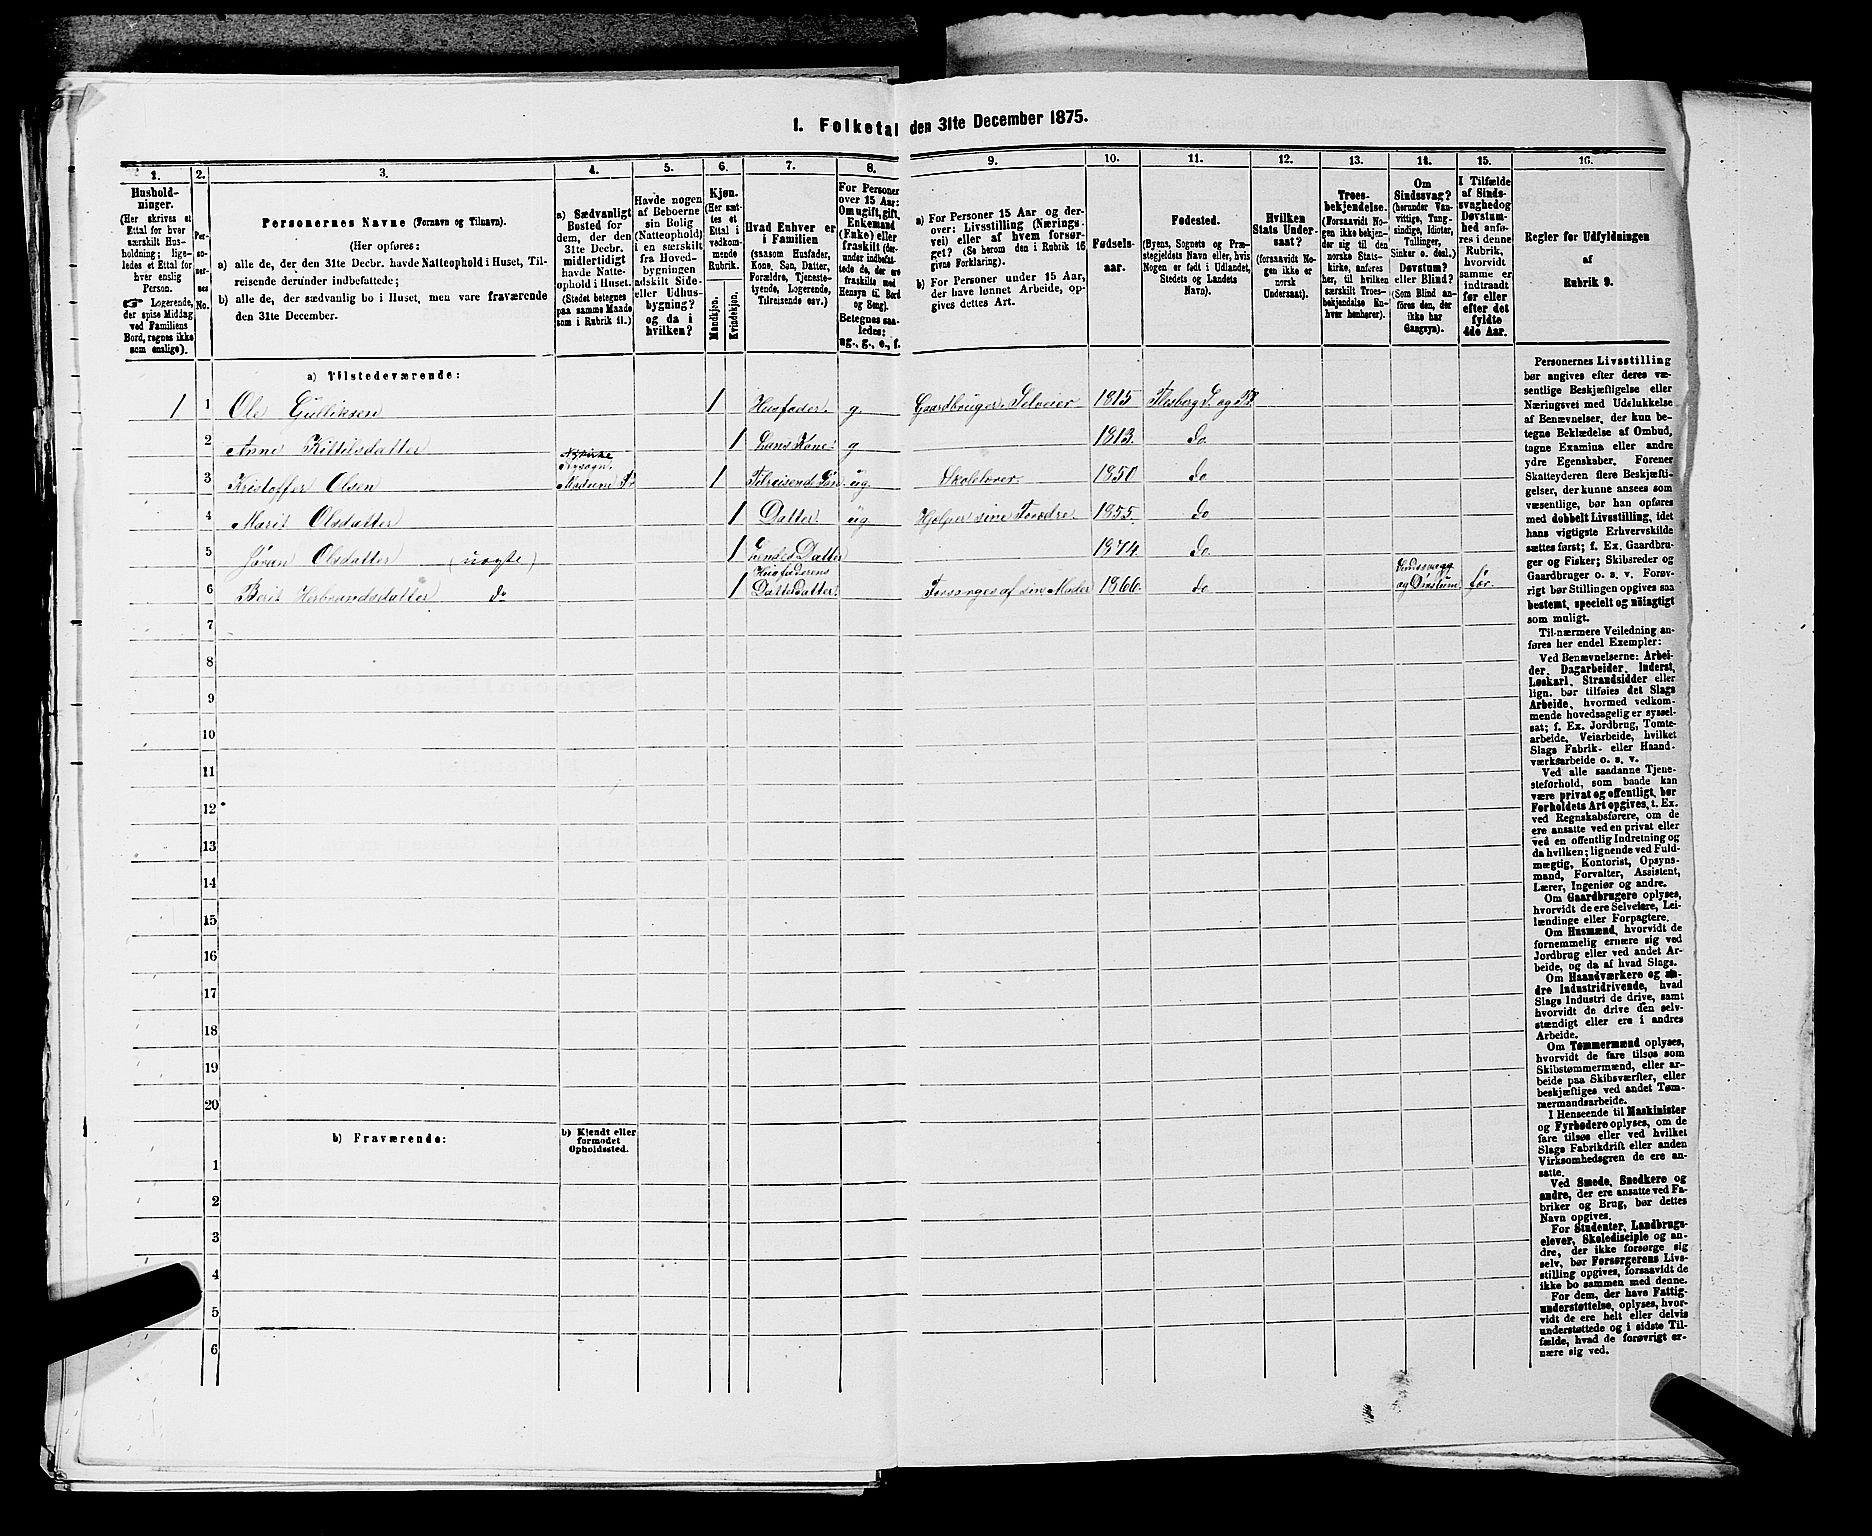 1. Folketal den 31te December 1875.
1. 2. 3. 4. 5. 6. 7. 8. 9. 10. 11. 12. 13. 14. 15. 16.
Hushold-
ninger.
(Her skrives et
Ettal for hver
særskilt Hus-
holdning; lige-
ledes et Ettal for
hver enslig
Person.
☞ Logerende,
der spise Middag
ved Familiens
Bord, regnes ikke
som enslige).
Per-
soner-
nes
No.
Personernes Navne (Fornavn og Tilnavn).
(Her opføres:
a) alle de, der den 31te Decbr. havde Natteophold i Huset, Til-
reisende derunder indbefattede;
b) alle de, der sædvanlig bo i Huset, men vare fraværende
den 31te December.
a) Sædvanligt
Bosted for
dem, der den
31te Decbr.
midlertidigt
havde Natte-
ophold i Huset.
(Stedet betegnes
paa samme Maade
som i Rubrik 11.)
Havde nogen
af Beboerne
sin Bolig
(Natteophold)
i en særskilt
fra Hoved-
bygningen
adskilt Side-
eller Udhus-
bygning?
og da i
hvilken?
Kjøn.
(Her sæt-
tes et
Ettal i
vedkom-
mende
Rubrik.
Mandkjøn.
Kvindekjøn.
Hvad Enhver er
i Familien
(saasom Husfader,
Kone, Søn, Datter,
Forældre, Tjeneste-
tyende, Logerende,
Tilreisende osv.)
For Personer
over 15 Aar:
Om ugift, gift,
Enkemand
(Enke) eller
fraskilt (der-
under indbefat-
tede de, der ere
fraskilte med
Hensyn til Bord
og Seng).
Betegnes saa-
ledes:
ug., g., e., f.
a) For Personer 15 Aar og der-
over: Livsstilling (Nærings-
vei) eller af hvem forsør-
get? (Se herom den i Rubrik 16
givne Forklaring).
b) For Personer under 15 Aar,
der have lønnet Arbeide, op-
gives dettes Art.
Fødsels-
aar.
Fødested.
(Byens, Sognets og Præ-
stegjeldets Navn eller, hvis
Nogen er født i Udlandet,
Stedets og Landets
Navn).
Hvilken
Stats Under-
saat?
(forsaavidt No-
gen ikke er
norsk
Undersaat).
Troes-
bekjendelse.
(Forsaavidt No-
gen ikke bekjen-
der sig til den
norske Stats-
kirke, anføres
her, til hvilken
særskilt Troes-
bekjendelse En-
hver henhører).
Om
Sindssvag?
(herunder Van-
vittige, Tung-
sindige, Idioter,
Tullinger,
Sinker o. desl.)
Døvstum?
eller Blind?
(Som Blind an-
føres den, der
ikke har
Gangsyn).
I Tilfælde
af Sinds-
svaghed og
Døvstum-
hed anfø-
res i denne
Rubrik,
hvorvidt
samme er
indtraadt
før eller
efter det
fyldte
4de Aar.
Regler for Udfyldningen
af
Rubrik 9.
a) Tilstedeværende:
1 1 Ole Gulliksen 1 Husfader. g. Gaardbruger. Selveier 1815 Flesberg S. og Pr
2 Anne Kittilsdatter 1 Hans Kone. g 1813. do
3 Kristoffer Olsen Modum Pr 1 Tilreisende Søn ug. Skolelærer. 1850 do
4 Marit Olsdatter 1 Datter. ug Hjelper sine Foreldre. 1855. do
5 Jøran Olsdatter (uægte) 1 Datter 1874. do
6 Berit Herbrandsdatter do 1 Husfaderens
Datterdatter. Forsørges af sin Moder 1866. do Sindssvag
og Døvstum før.
7
8
9
10
11
12
13
14
15
16
17
18
19
20
b) Fraværende:
b) Kjendt eller
formodet
Opholdssted.
1
2
3
4
5
6
Personernes Livsstilling
bør angives efter deres væ-
sentlige Beskjæftigelse eller
Næringsvei med Udelukkelse
af Benævnelser, der kun be-
tegne Beklædelse af Ombud,
tagne Examina eller andre
ydre Egenskaber. Forener
Skatteyderen flere Beskjæfti-
gelser, der kunne ansees som
væsentlige, bør han opføres
med dobbelt Livsstilling, idet
hans vigtigste Erhvervskilde
sættes først; f. Ex. Gaardbru-
ger og Fisker; Skibsreder og
Gaardbruger o. s. v. Forøv-
rigt bør Stillingen opgives saa
bestemt, specielt og nøiagtigt
som muligt.
Til nærmere Veiledning an-
føres her endel Exempler:
Ved Benævnelserne: Arbei-
der, Dagarbeider, Inderst,
Løskarl, Strandsidder eller
lign. bør tilføies det Slags
Arbeide, hvormed vedkom-
mende hovedsagelig er syssel-
sat; f. Ex. Jordbrug, Tomte-
arbeide, Veiarbeide, hvilket
Slags Fabrik- eller Haand-
værksarbeide o. s. v.
Ved alle saadanne Tjene-
steforhold, som baade kan
være privat og offentligt, bør
Forholdets Art opgives, t. Ex.
ved Regnskabsførere, om de
ere ansatte ved en privat eller
ved en offentlig Indretning og
da hvilken; lignende ved Fuld-
mægtig, Kontorist, Opsyns-
mand, Forvalter, Assistent,
Lærer, Ingeniør og andre.
Om Gaardbrugere oplyses,
hvorvidt de ere Selveiere, Lei-
lændinge eller Forpagtere.
Om Husmænd, hvorvidt de
fornemmelig ernære sig ved
Jordbrug eller ved andet Ar-
beide, og da af hvad Slags.
Om Haandværkere og an-
dre Industridrivende, hvad
Slags Industri de drive, samt
hvorvidt de drive den selv-
stændigt eller ere i andres
Arbeide.
Om Tømmermænd oplyses,
hvorvidt de fare tilsøs som
Skibstømmermænd, eller ar-
beide paa Skibsværfter, eller
beskjæftiges ved andet Tøm-
mermandsarbeide.
I Henseende til Maskinister
og Fyrbødere oplyses, om de
fare tilsøs eller ved hvilket
Slags Fabrikdrift eller anden
Virksomhedsgren de ere an-
satte.
Ved Smede, Snedkere og
andre, der ere ansatte ved Fa-
briker og Brug, bør dettes
Navn opgives.
For Studenter, Landbrugs-
elever, Skoledisciple og an-
dre, der ikke forsørge sig
selv, bør Forsørgerens Livs-
stilling opgives, forsaavidt de
ikke bo sammen med denne.
For dem, der have Fattig-
understøttelse, oplyses, hvor-
vidt de ere helt eller delvis
understøttede og i sidste Til-
fælde, hvad de forøvrigt er-
nære sig ved.